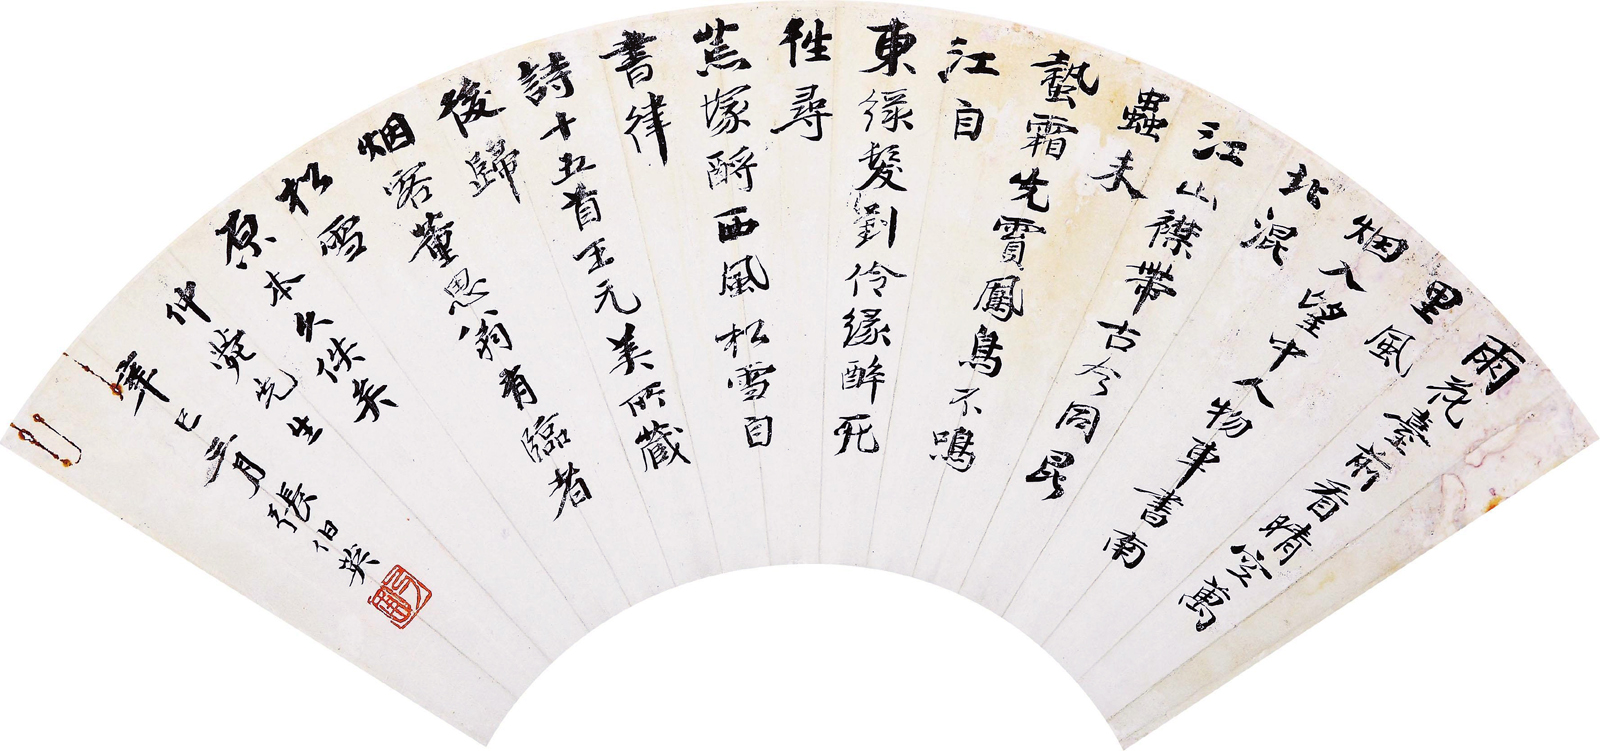 雨花臺前看晴空萬
里風
烟入望中人物車書南
北混
江山襟帶古今同昆
蟲未
蟄霜先霣鳳鳥不鳴
江自
東緑髮劉伶緣醉死
往尋
荒塚酹西風松雪自
書律
詩十五首王元美所藏
後歸
烟客董思翁有臨者
松雪
原本久佚矣
仲先生
辛巳月張伯英